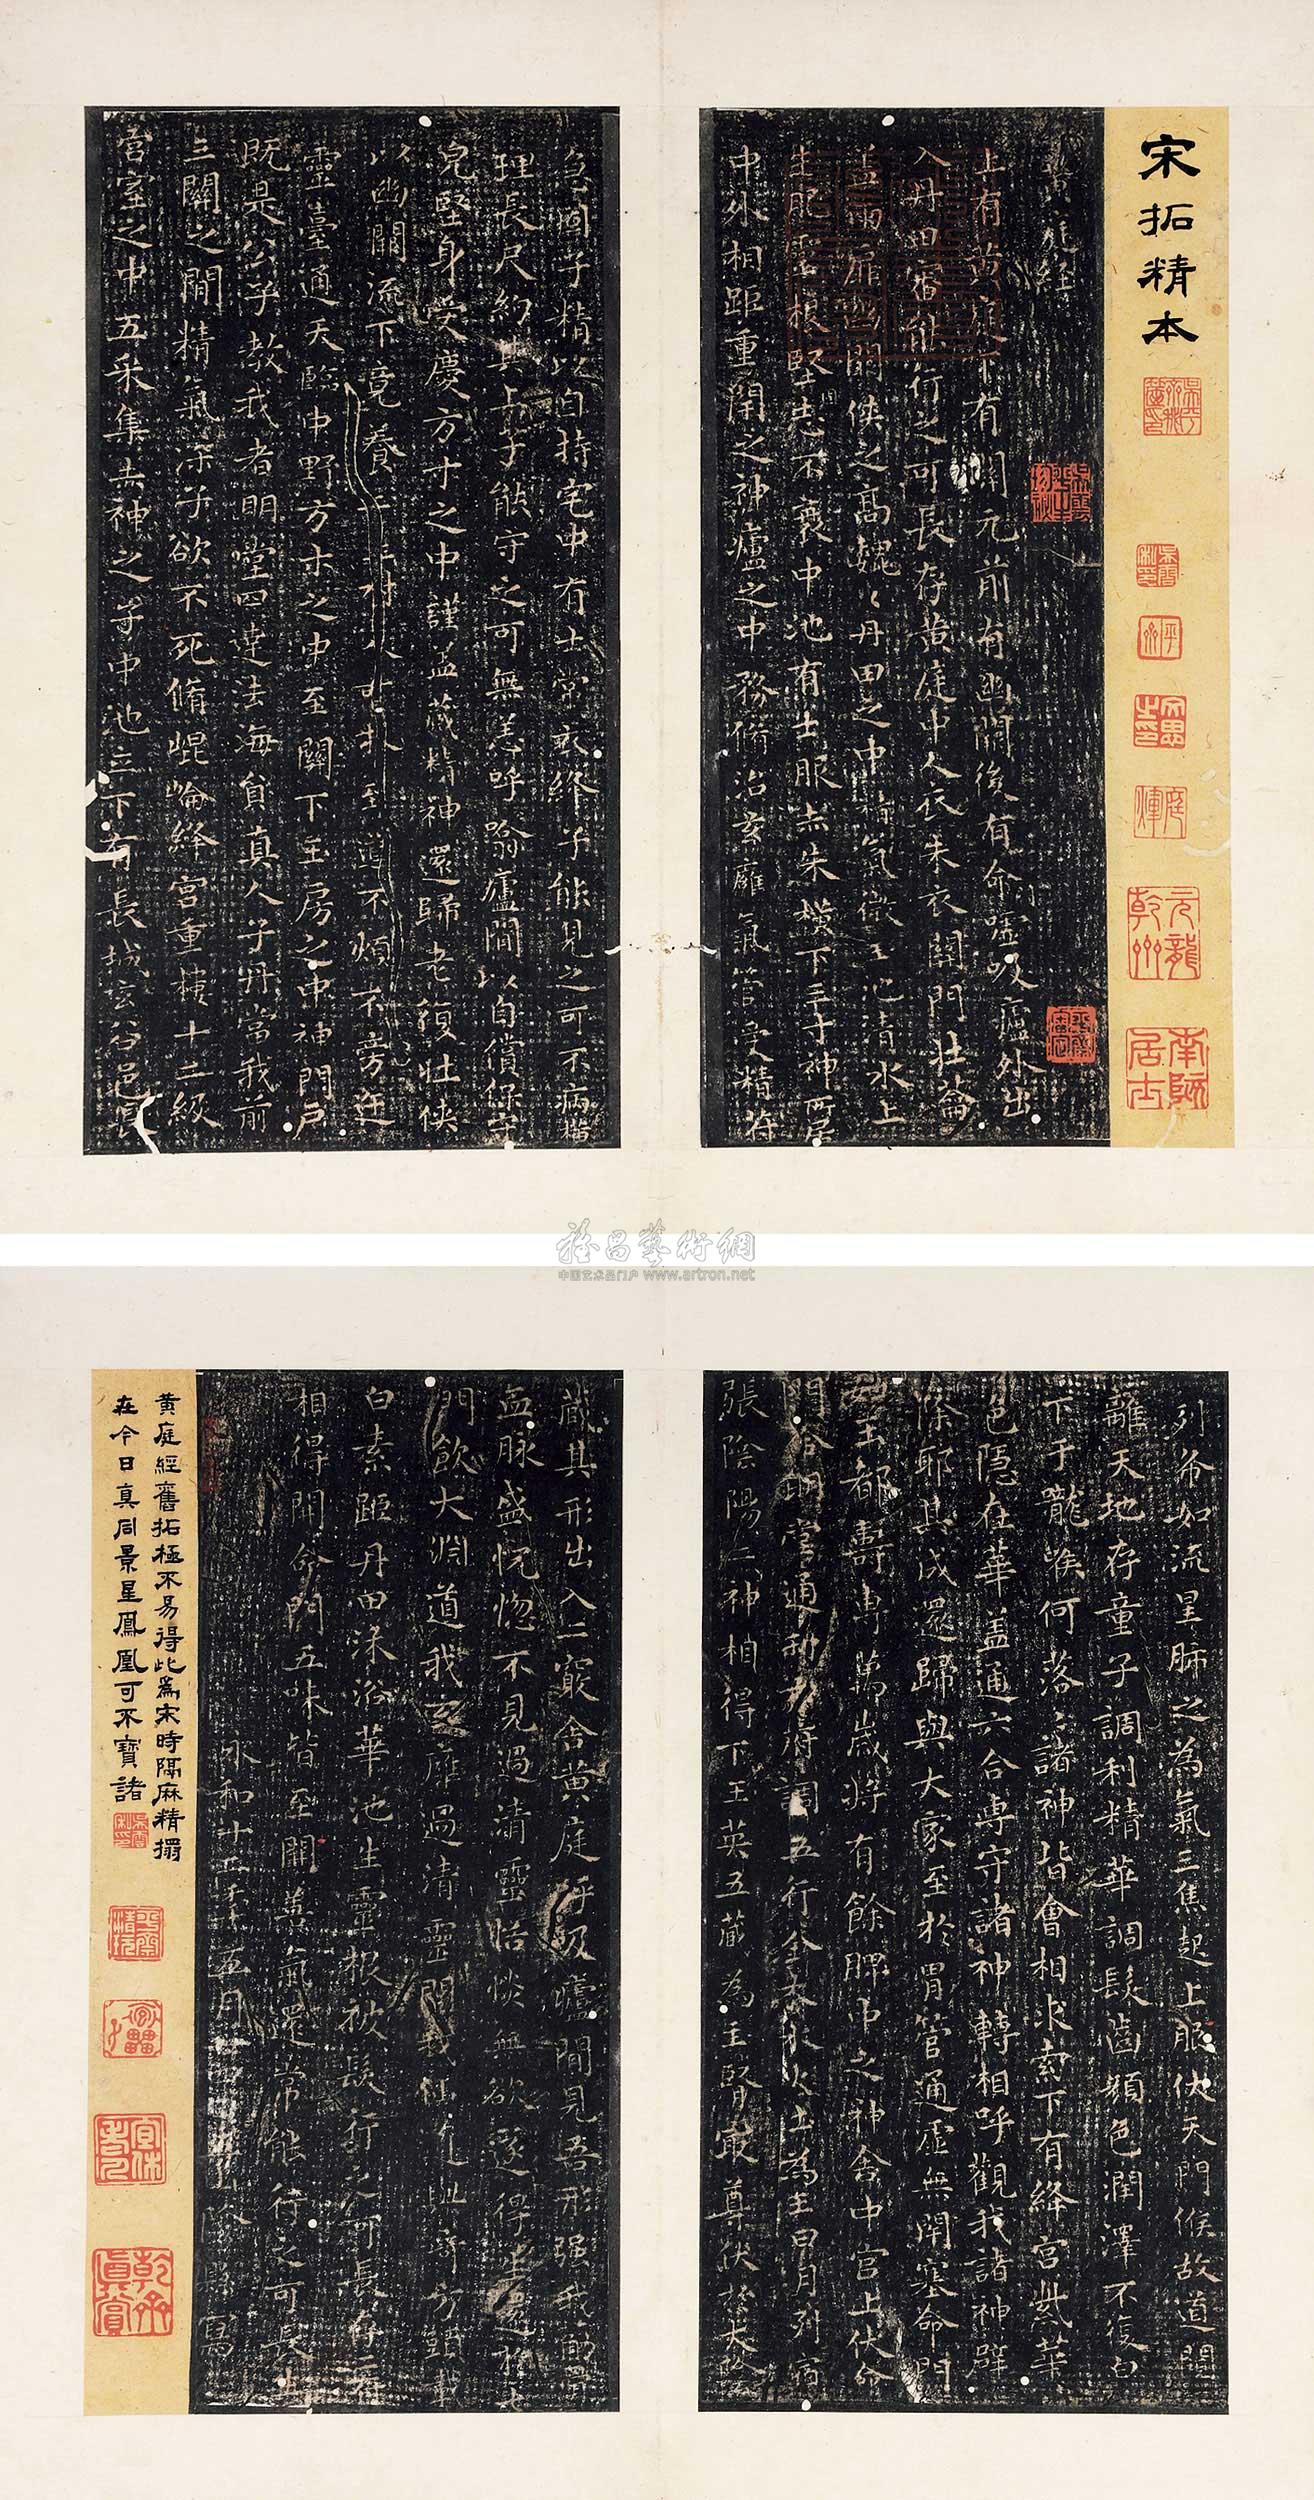 宋拓精本
黃庭經
上有黃庭下有關元前有幽闕後有命噓吸廬外出
入丹田審能行之可長存黃庭中人衣朱衣關門壯蘥
蓋兩扉幽闕俠之高魏魏丹田之中精氣微玉池清水上
生肥靈根堅志不衰中池有士服赤朱橫下三寸神所居
中外相距重閉之神廬之中務脩治玄廱氣管受精符
急固子精以自持宅中有士常衣絳子能見之可不病橫
理長尺約其上子能守之可無恙呼噏廬間以自償保守
完堅身受慶方寸之中謹蓋藏精神還歸老復壯俠
以幽闕流下竟養子玉樹不可扙至道不煩不旁迕
靈臺通天臨中野方寸之中至關下玉房之中神門戶
既是公子教我者明堂四達法海員真人子丹當我前
三關之間精氣深子欲不死脩崐崘絳宮重樓十二級
宮室之中五采集赤神之子中池立下有長城玄谷邑長
列布如流星肺之為氣三焦起上服伏天門候故道闚
離天地存童子調利精華調髮齒顏色潤澤不復白
下于嚨喉何落落諸神皆會相求索下有絳宮紫華
色隱在華蓋通六合專守諸神轉相呼觀我諸神辟
除耶其成還歸與大家至於胃管通虛無閉塞命門
如玉都壽專萬歲將有餘脾中之神舍中宮上伏命
門合明堂通利六府調五行金木水火土為王日月列宿
張陰陽二神相得下玉英五藏為主腎最尊伏於大陰
藏其形出入二竅舍黃庭呼吸廬間見吾形强我筋骨
血脈盛恍惚不見過清靈恬惔無欲遂得生還於七
門飲大淵道我玄廱過清靈問我仙道與奇方頭載
白素距丹田沐浴華池生靈根被髮行之可長存二府
相得開命門五味皆至開善氣還常能行之可長生
永和十二年五月廿四日山陰縣寫
黃庭經舊拓極不易得此為宋時隔麻精搨
在今日真同景星鳳凰可不寶諸
雅昌藝術網
中国艺术品门户 www.artron.net